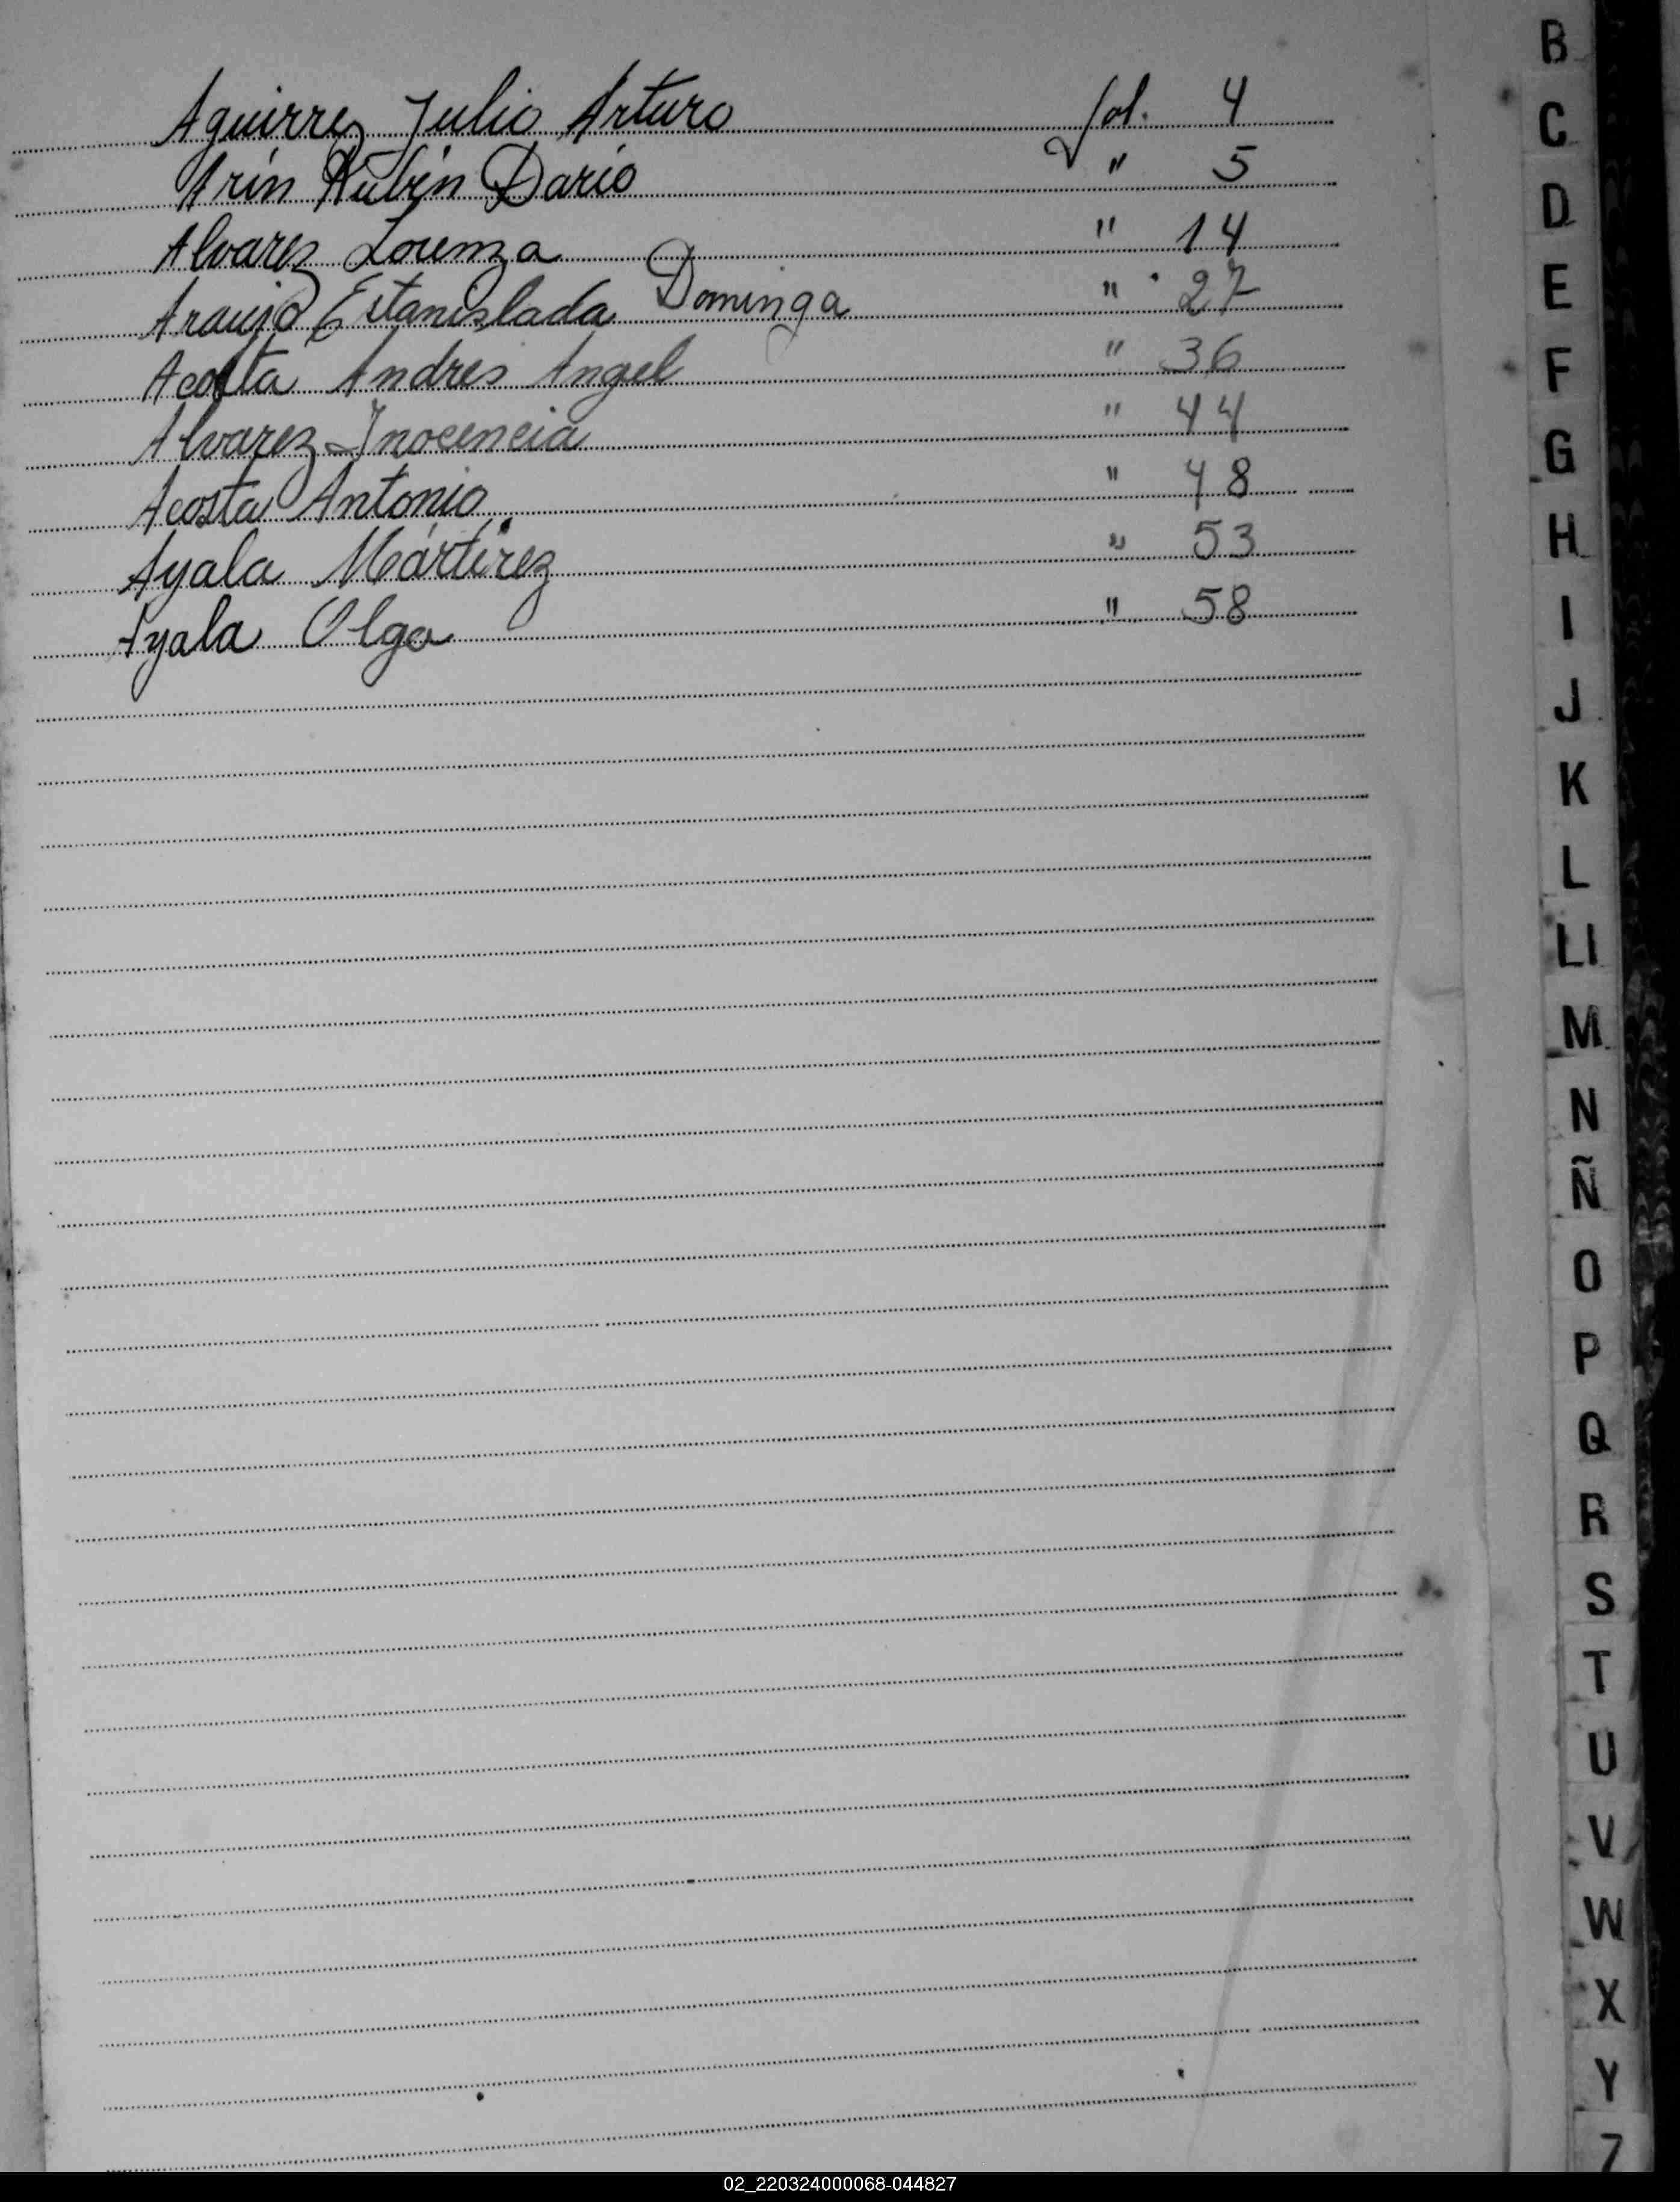 Aguirrez Julio Arturo fol. 4
Arin Rubén Dario " 5
Alvarez Lorenza " 14
Araujo Estanislada Dominga " 27
Acosta Andres Angel " 36
Alvarez Inocencia " 44
Acosta Antonio " 48
Ayala Mártirez " 53
Ayala Olga " 58
B
C
D
E
F
G
H
I
J
K
L
Ll
M
N
Ñ
O
P
Q
R
S
T
U
V
W
X
Y
Z
02_220324000068-044827